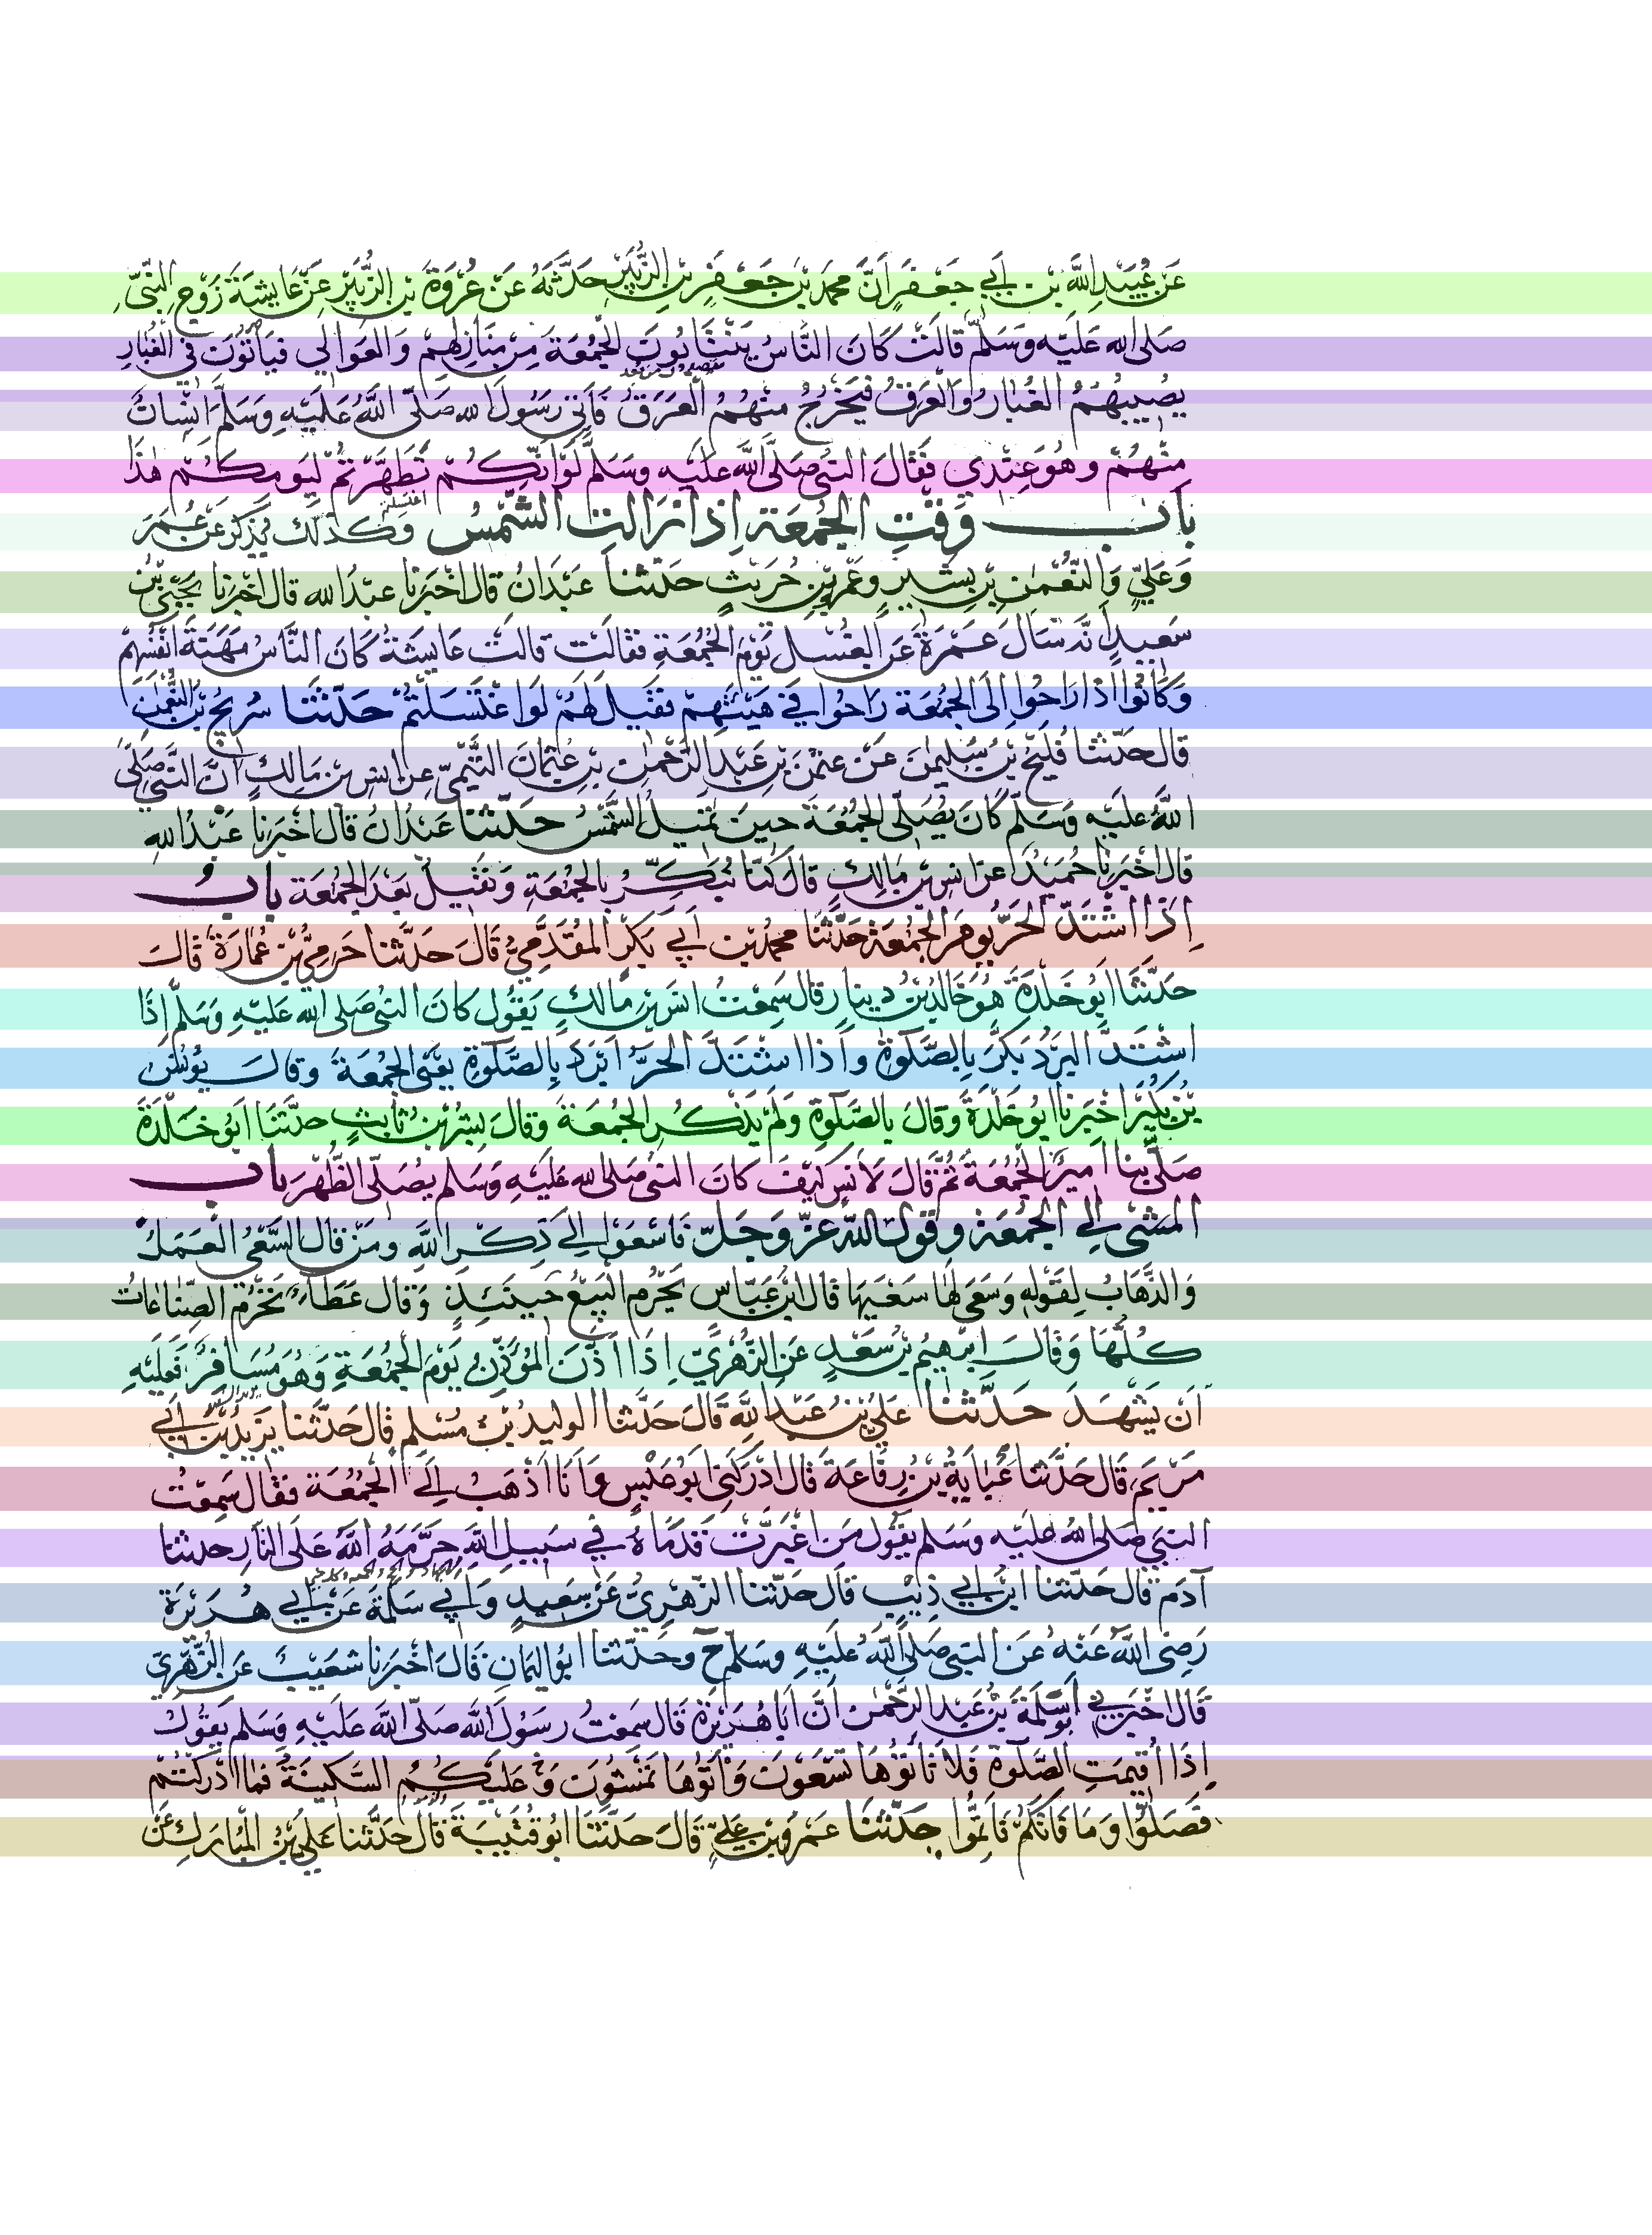 عَن عُبَيدِ اللَّهِ بن أبي جَعفَرٍ أنَّ محمد بن جَعفَرِ بن الزُّبَيرِ حَدَّثَهُ عَن عُروَةَ بن الزُّبَيرِ عَن عَايشةَ زَوجِ النَّبِيِّ
صَلى الله عَلَيهِ وَسَلَّمَ قَالَت كَانَ النَّاسُ يَنتَابُونَ الجُمُعَةَ مِن مَنَازِلِهِم وَالعَوَالي فيَأتُونَ في الغُبَارِ
يُصِيبُهُمُ الغُبَارُ وَالعَرَقُ فيَخرُجُ مِنهُمُ العَرَقُ فَأتى رَسُولَ الله صَلَّى اللهُ عَلَيهِ وَسَلَّمَ انسَانٌ
مِنهُم وهُوَ عِندِي فَقَالَ النبيُّ صَلَّى اللهُ عَلَيهِ وسَلَّم لَو أنَّكُم تَطَهَّرتُم لِيَومِكُم هَذَا
باب وَقتِ الجُمُعَةِ إذا زالتِ الشَّمسُ وكَذلك يُذكَرُ عَن عُمَرَ
وَعَليٍّ وَالنُّعمنِ بن بَشيرٍ وعَمرِو بنِ حُرَيثٍ حَدَّثَنا عَبدَانُ قال اخبَرَنا عبدُ الله قال اخبَرنا يَحيَى بنُ
سَعِيدٍ أنَّه سَألَ عَمرَةَ عَنِ الغُسلِ يَومَ الجُمُعَةِ فقالَت قالَت عَايشَةُ كَانَ النَّاسُ مَهَنَةَ أنفُسِهِم
وَكَانُوا اذَا رَاحُوا إلَى الجُمُعَة رَاحُوا في هَيئَتِهِم فقِيلَ لَهُم لَو اغتَسَلتُم حَدَّثَنَا سُرَيجُ بنُ النُّعمنِ
قال حَدَّثَنا فُلَيحُ بنُ سُلَيمنَ عَن عثمنَ بنِ عَبدِ الرَّحمنِ بنِ عُثمَانَ التَّيمِيِّ عن أنسِ بن مَالِكٍ أنَّ النَّبيَّ صَلَّى
اللَّهُ عَلَيهِ وَسَلَّم كَانَ يُصَلِّي الجُمُعَةَ حِينَ تَمِيلُ الشَّمسُ حَدَّثَنَا عَبدَانُ قال اخبَرَنا عَبدُ اللهِ
قال اخبَرنا حُمَيدٌ عن انسِ بن مَالِكٍ قالَ كُنَّا نُبَكِّرُ بِالجُمُعَةِ وَنَقِيلُ بَعدَ الجُمُعَة باب
إذَا اشتَدَّ الحَرُّ يومَ الجُمُعَة حَدَّثَنا محمدُ بن أبي بَكرٍ المُقَدَّمِيُّ قَالَ حَدَّثَنا حَرَمِيُّ بن عُمَارَةَ قالَ
حَدَّثَنَا أبُو خَلدَةَ هُوَ خَالِدُ بنُ دِينار قال سَمِعتُ انَسَ بنَ مَالكٍ يَقُول كانَ النبيُّ صَلى الله عَلَيهِ وَسَلَّم إذَا
اشتَدَّ البَردُ بَكَّرَ بِالصَّلَوةِ وإذا اشتَدَّ الحَرُّ أبرَدَ بِالصَّلَوةِ يَعني الجُمُعَةَ وقالَ يُونُسُ
بنُ بُكَيرٍ اخبَرنا ابُو خَلدَةَ وقالَ بالصَّلَوةِ ولَم يَذكُر الجُمُعَةَ وَقَالَ بِشرُ بنُ ثَابتٍ حدَّثَنَا أبُو خَلدَةَ
صَلَّى بِنا أمِيرٌ الجُمُعَةَ ثُمَّ قَالَ لأنَسٍ كَيفَ كانَ النبيُّ صَلى الله عَلَيهِ وَسَلم يُصَلِّي الظُّهرَ باب
المَشي إلى الجُمُعَة وقولِ اللهِ عَزَّ وَجَلَّ فَاسعَوا إلَى ذِكرِ اللهِ ومَن قال السَّعيُ العَمَلُ
وَالذَّهَابُ لِقَولِهِ وَسَعَى لَهَا سَعيَهَا قال ابنُ عَبَّاسٍ يَحرُمُ البَيعُ حِينَئِذٍ وَقال عَطَاءٌ تَحرُمُ الصِّنَاعَاتُ
كُلُّهَا وَقَالَ إبرَهِيمُ بنُ سَعدٍ عَنِ الزُّهرِيِّ إذَا أذَّنَ المُؤَذِّنُ يَومَ الجُمُعَةِ وَهُوَ مُسَافِرٌ فَعَلَيهِ
أن يَشهَدَ حَدَّثَنا عَليُّ بنُ عَبدِ اللَّهِ قَالَ حَدَّثَنا الوليدُ بنُ مُسلمٍ قالَ حَدَّثَنا يَزيدُ بنُ أبي
مَريَمَ قال حَدَّثَنا عَبَايَةُ بنُ رِفَاعَةَ قَال أدرَكَنِي أبُو عَبسٍ وَأنَا أذهَبُ إلَى الجُمُعَة فقال سَمِعتُ
النبيَّ صَلى الله عَلَيهِ وَسَلم يَقُول مَن اغبَرَّت قَدَمَاهُ في سَبِيلِ اللهِ حَرَّمَهُ اللهُ عَلَى النَّارِ حدثنا
آدَم قال حَدَّثَنا ابنُ ابي ذِيبٍ قالَ حَدَّثَنا الزُّهرِيُّ عَن سَعِيدٍ وَأبي سَلَمَةَ عَن أبي هُرَيرَةَ
رَضِيَ اللهُ عَنهُ عَن النبيِّ صَلى اللَّهُ عَلَيهِ وسَلَّم ح وحَدَّثنا ابُو اليَمَانِ قَالَ اخبَرَنا شُعَيبٌ عَن الزُّهرِيِّ
قَال اخبَرَني أبُو سَلَمَةَ بنُ عَبدِ الرَّحمنِ أنَّ أبَا هُرَيرَةَ قَال سَمِعتُ رَسُولَ اللهِ صَلَّى اللهُ عَلَيهِ وَسَلم يَقُولُ
إِذَا أُقِيمَتِ الصَّلَوةُ فَلا تَأتُوهَا تَسعَونَ وَأتُوهَا تَمشُونَ وَعَلَيكُمُ السَّكِينَةُ فَما ادرَكتُم
فَصَلُّوا وَمَا فَاتَكُم فَأتِمُّوا حَدَّثَنَا عَمرُو بنُ عَليٍّ قَالَ حَدَّثَنَا ابُو قُتَيبَةَ قَال حَدَّثَنا عَليُّ بنُ المُبَارَكِ عَن